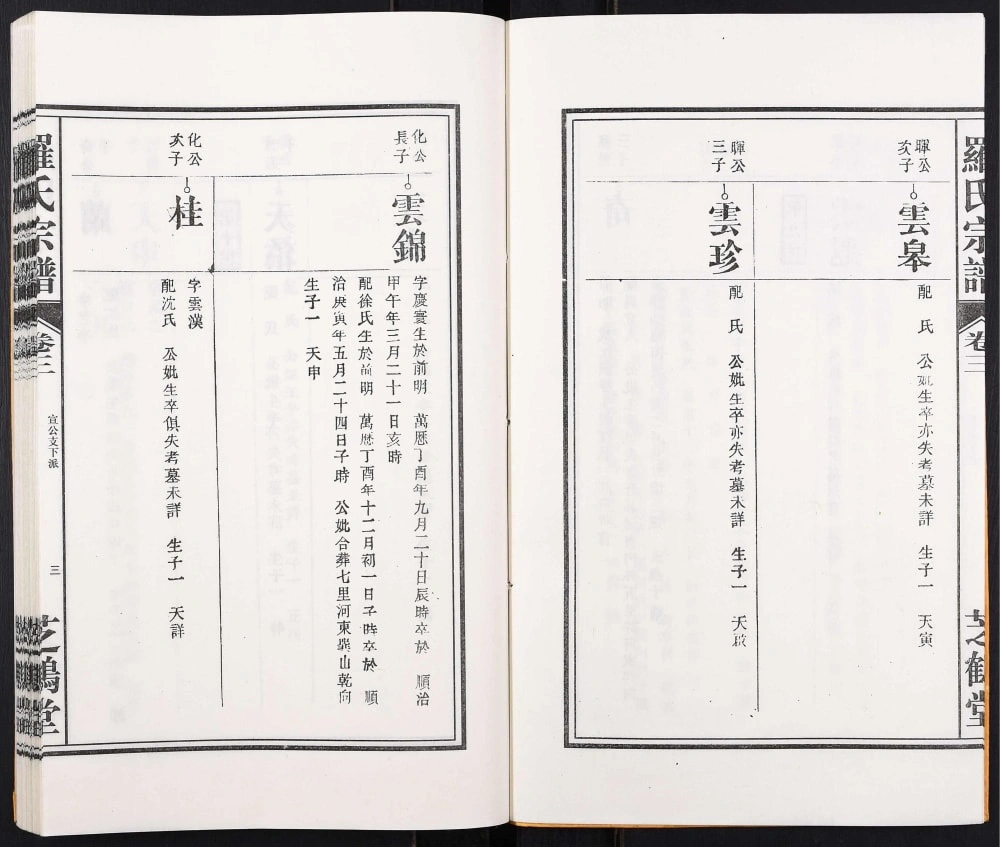 羅氏宗譜
卷三
芝鶴堂
暉公
次子
雲皋
配 氏 公妣生卒亦失考墓未詳 生子一 天寅
暉公
三子
雲珍
配 氏 公妣生卒亦失考墓未詳 生子一 天啟
化公
長子
雲錦
字慶寰生於前明 萬曆丁酉年九月二十日辰時卒於 順治
甲午年三月二十一日亥時
配徐氏生於前明 萬曆丁酉年十二月初一日子時卒於 順
治庚寅年五月二十四日子時 公妣合葬七里河東巽山乾向
生子一 天申
化公
次子
桂
字雲漢
配沈氏 公妣生卒俱失考墓未詳 生子一 天詳
羅氏宗譜
卷三
宣公支下派
三
芝鶴堂